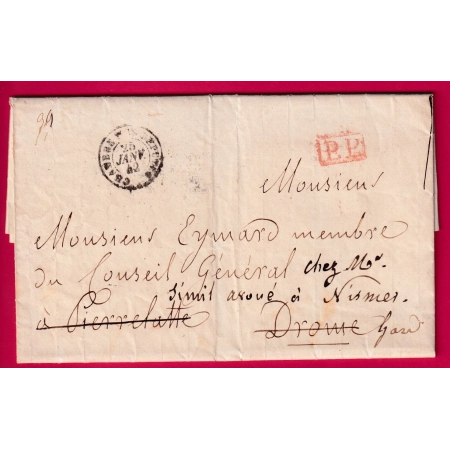 25
JANV
42
P.P.
Monsieur
Monsieur Eymard membre
du Conseil Général chez Mr.
avoué à Nismes.
à Pierrelatte Drome Gard